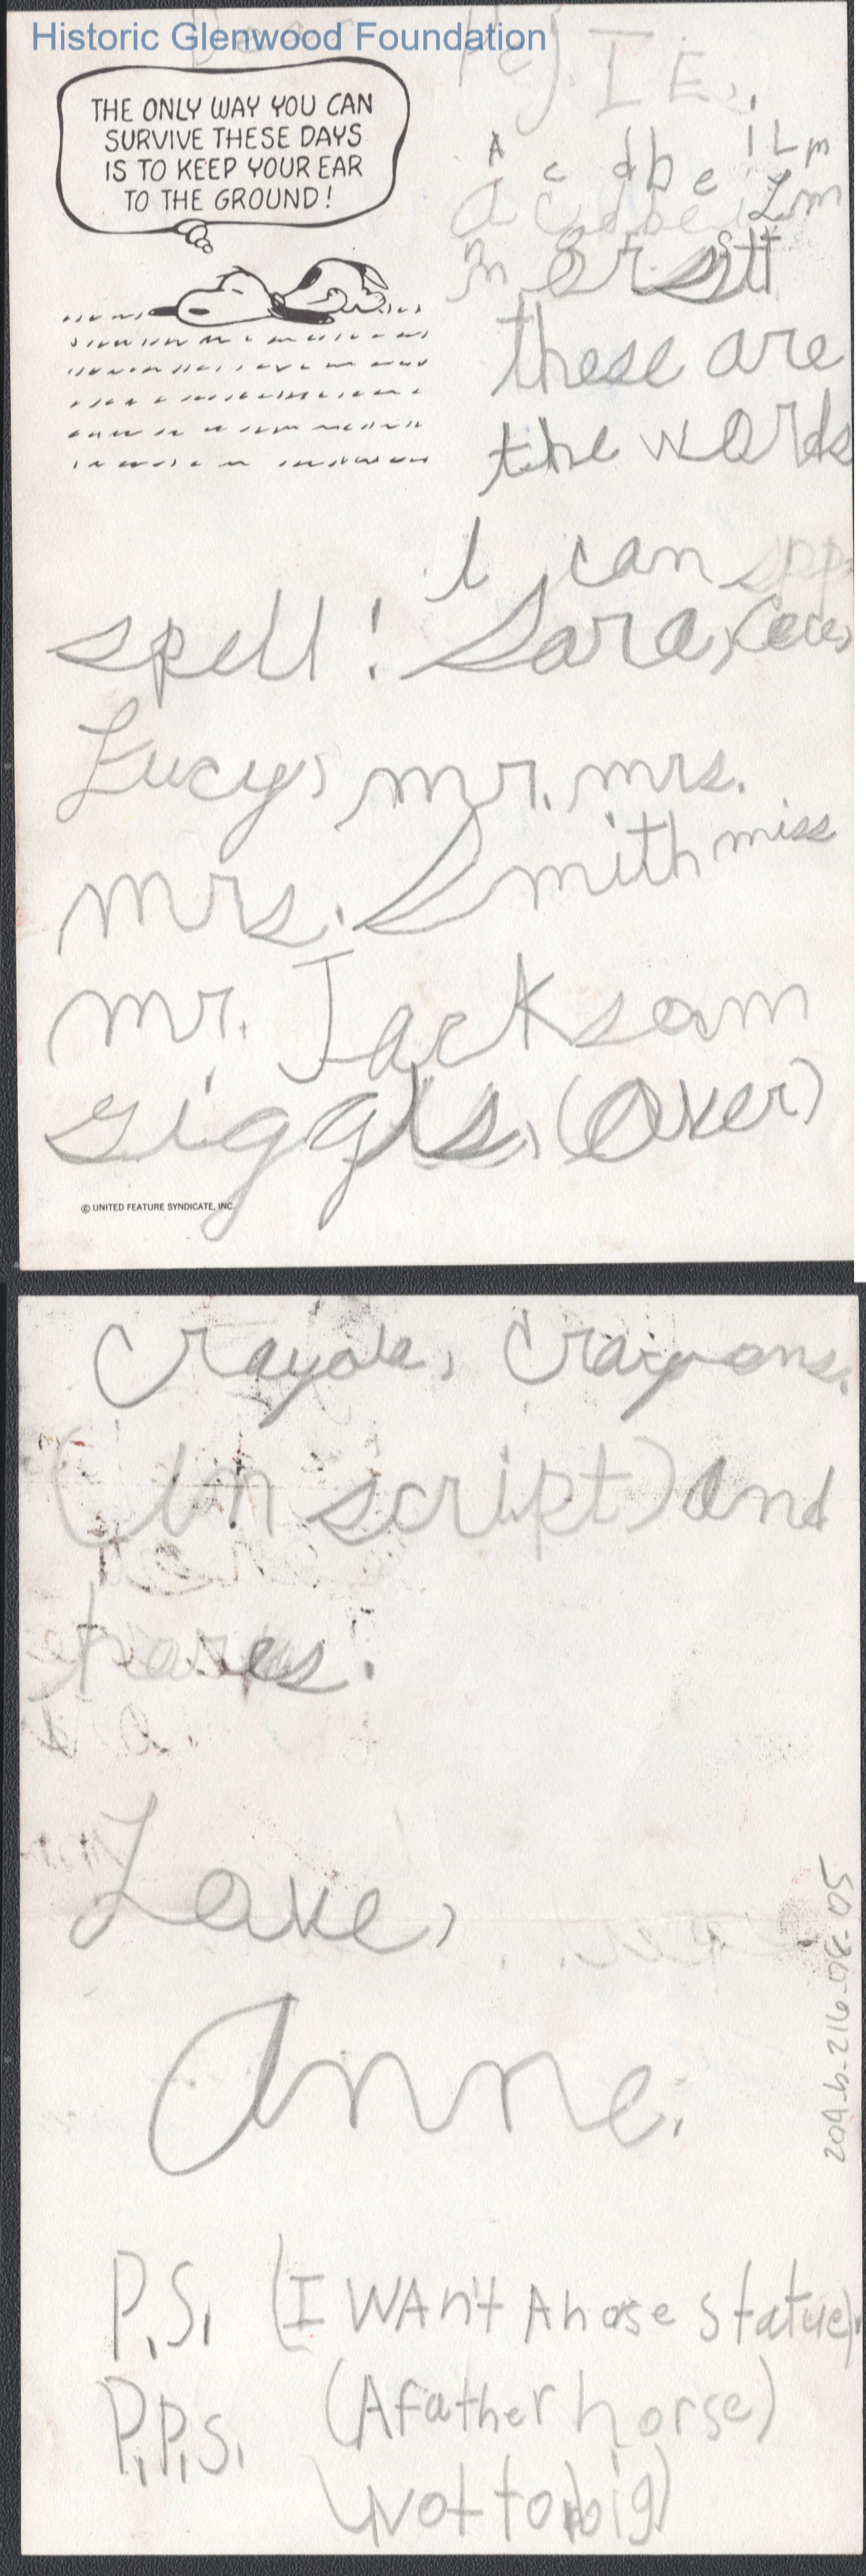 Historic Glenwood Foundation
Dear
THE ONLY WAY YOU CAN
SURVIVE THESE DAYS
IS TO KEEP YOUR EAR
TO THE GROUND!
A c d b e i L m
a c d b e i L m
n o r s t
these are
the words
I can spp
spell! Sara, Cece,
Lucy, mr. mrs.
mrs. Smith miss
mr. Jacksom
giggls, (over)
© UNITED FEATURE SYNDICATE, INC.
Crayola, Crayons.
(in script) and
hares.
Love,
Anne.
209-b-216-08-05
P.S. (I WAn't A horse statue).
P.P.S. (A father horse)
(Not to big)